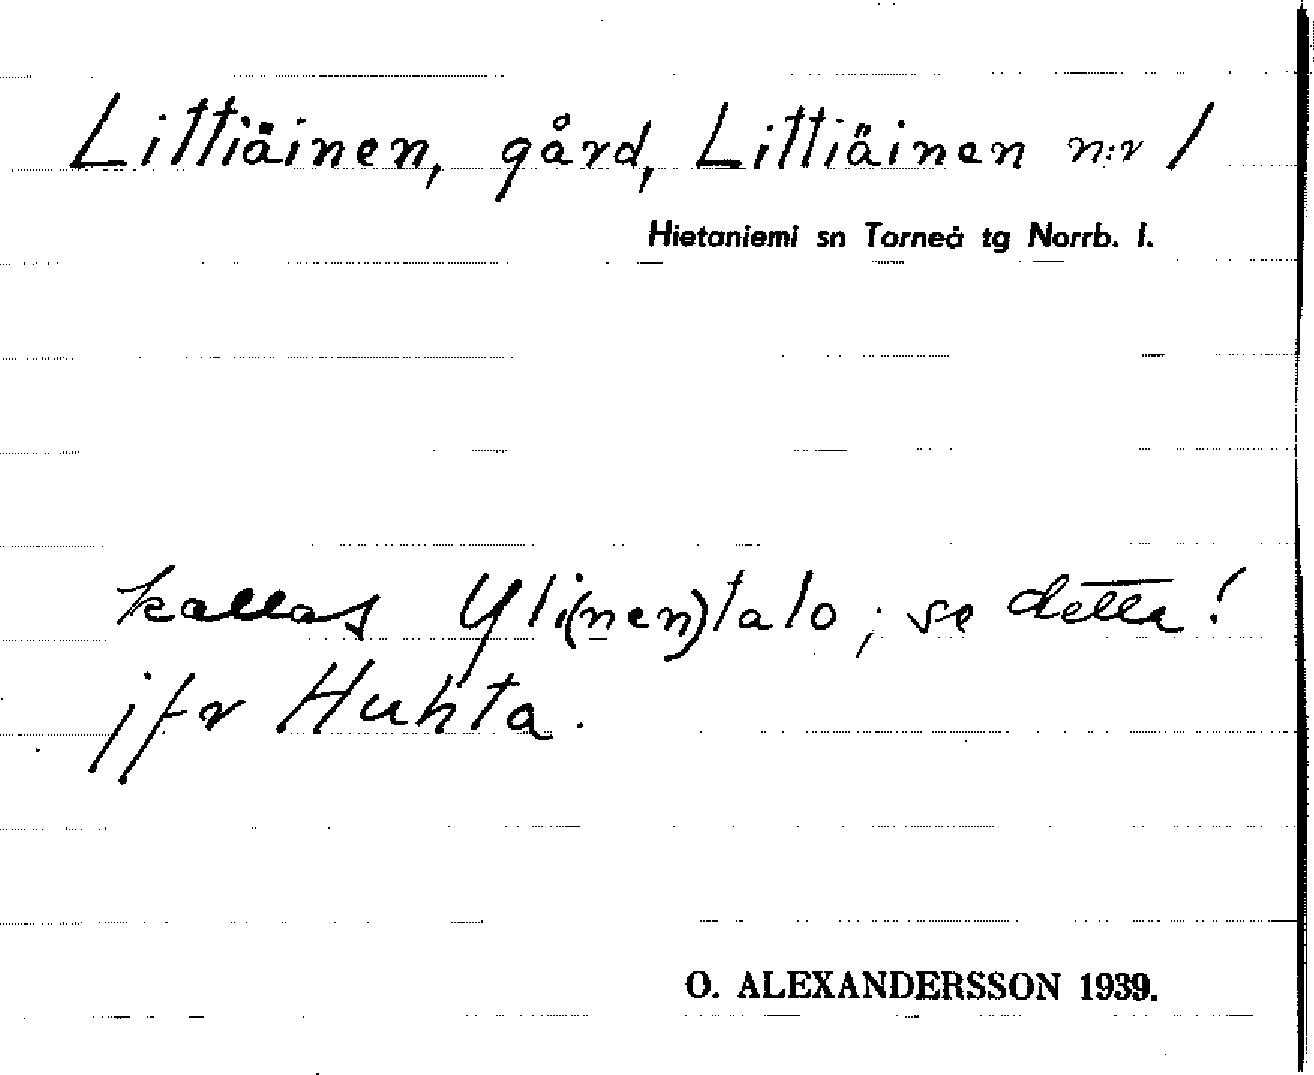 Littiäinen, gård, Littiäinen n:r 1
Hietaniemi sn Torneå tg Norrb. l.
kallas Yli(nen)talo; se detta!
jfr Huhta.
O. ALEXANDERSSON 1939.